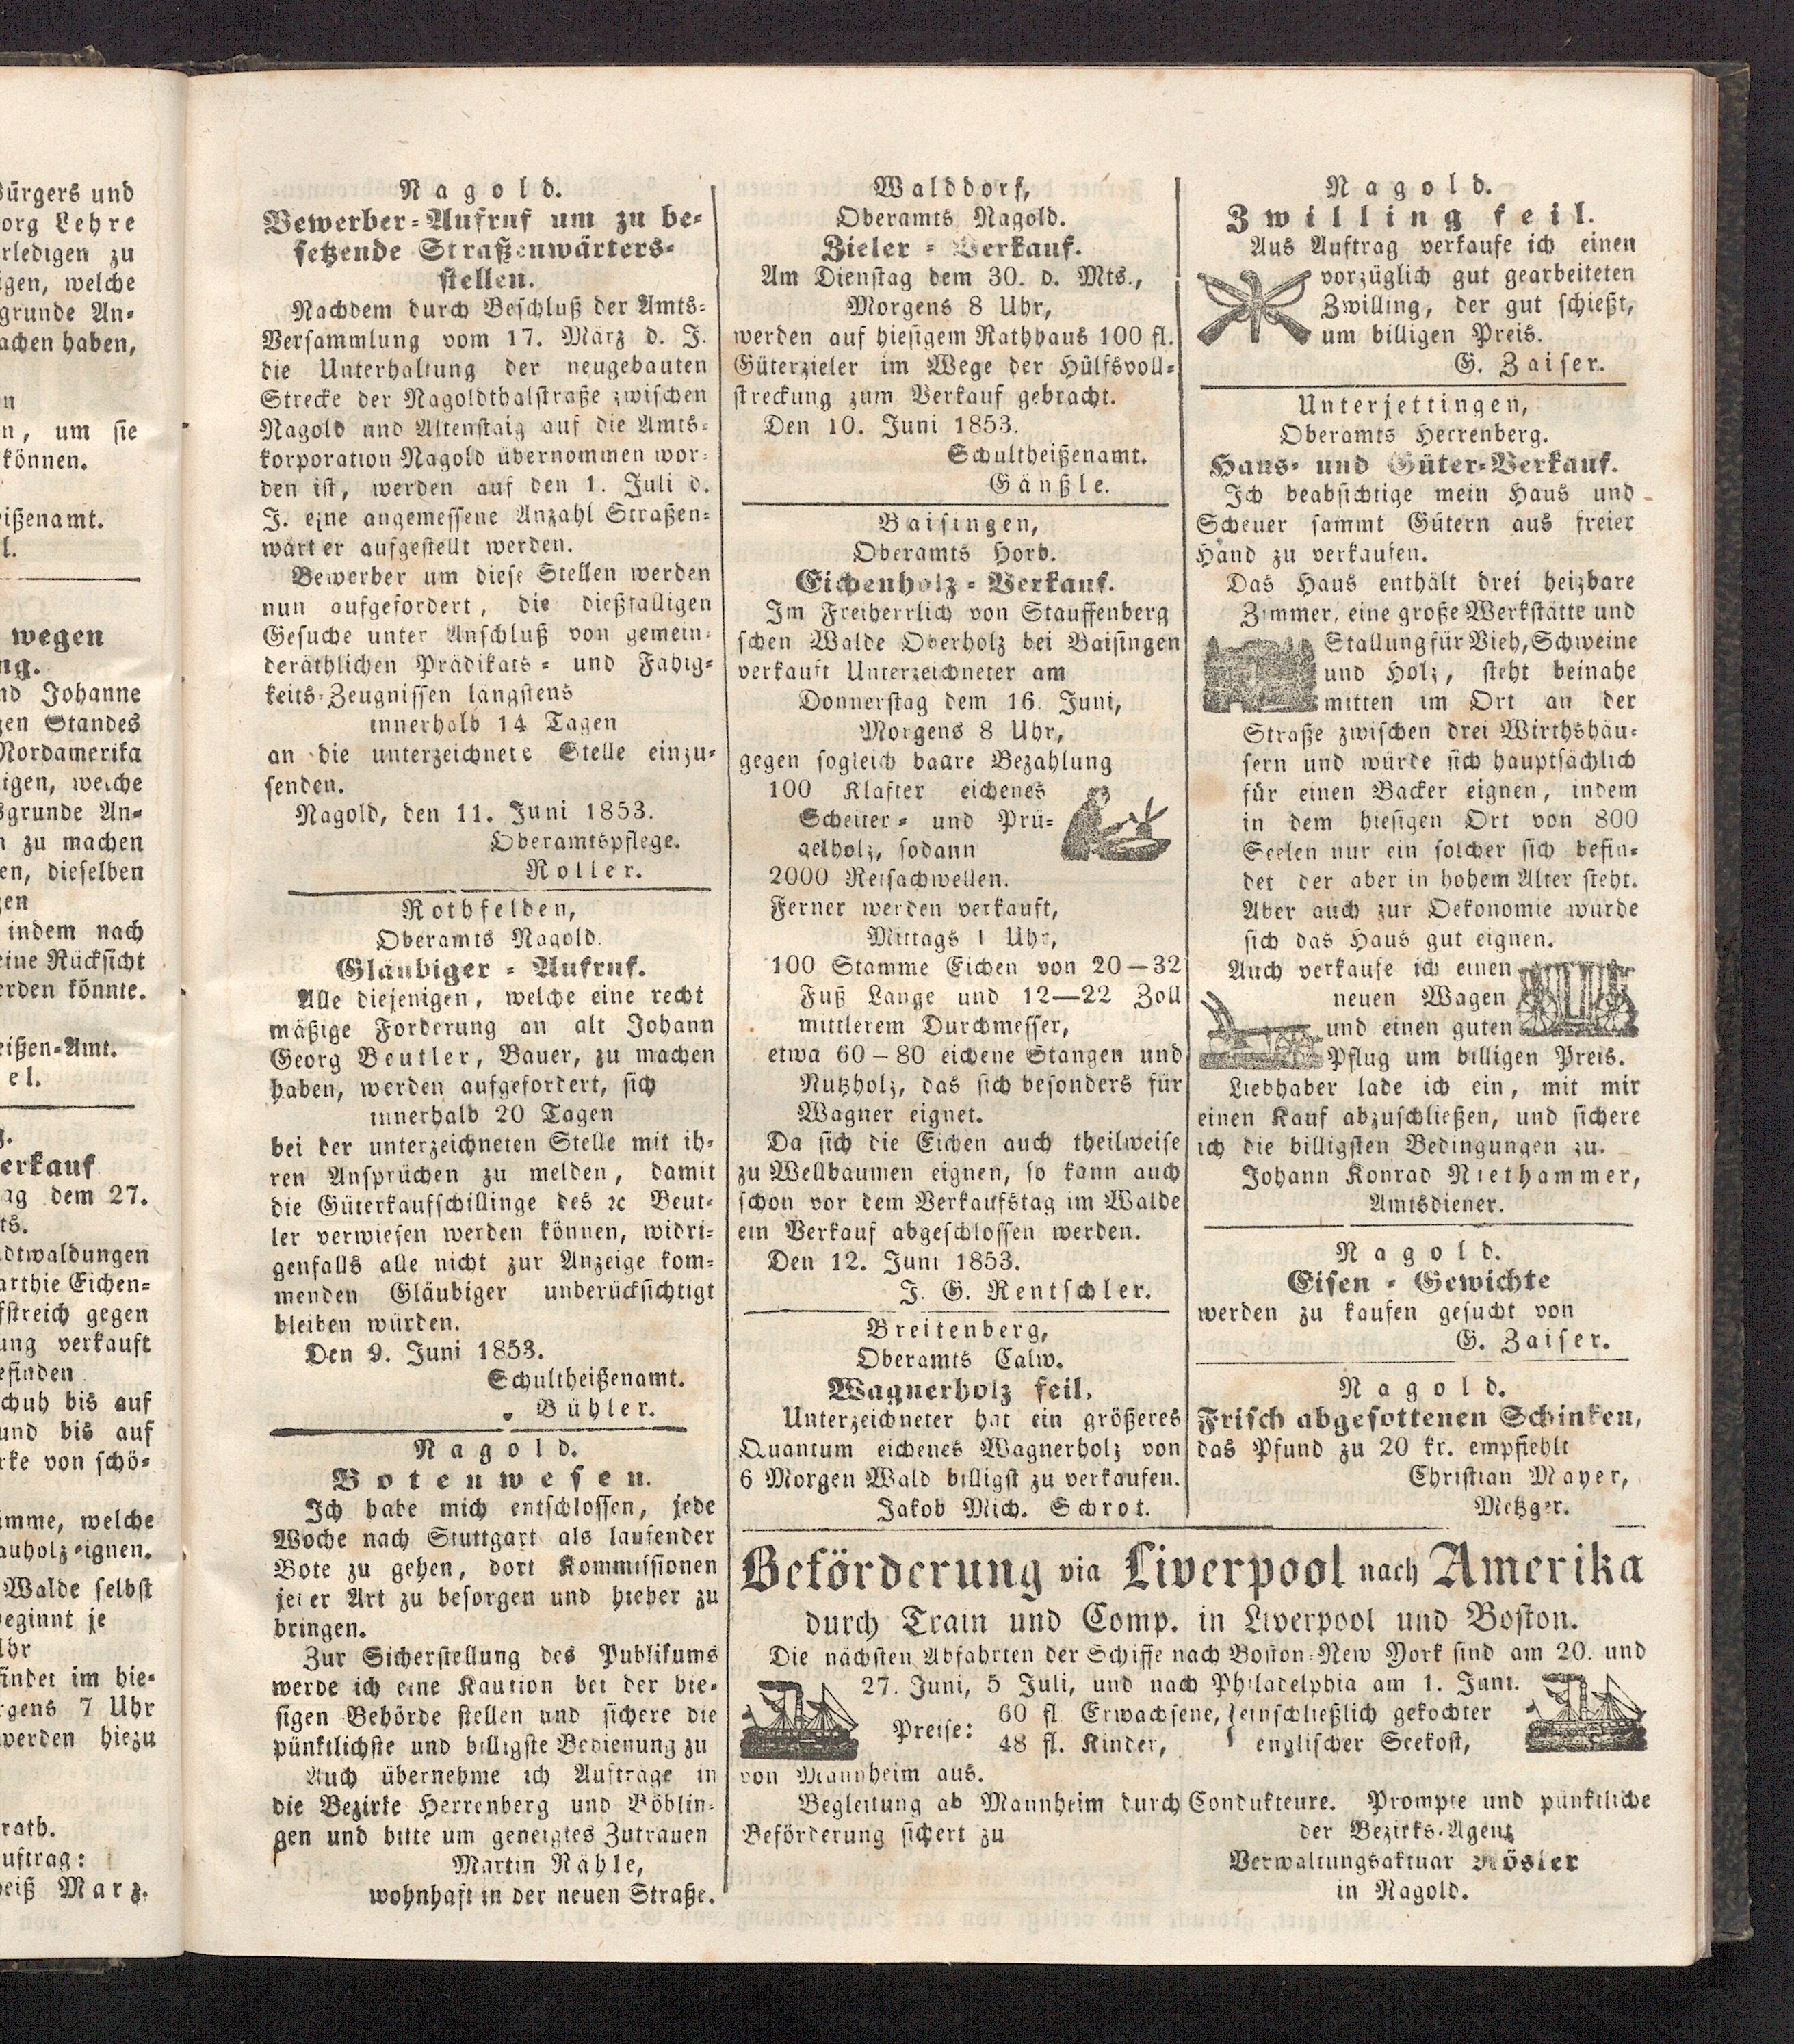 ürgers und
org Lehre
rledigen zu
igen, welche
grunde An-
achen haben,
n
n, um sie
können.
eißenamt.
l.
wegen
ng.
nd Johanne
gen Standes
Nordamerika
igen, welche
sgrunde An-
n zu machen
en, dieselben
gen
indem nach
eine Rücksicht
erden könnte.
eißen-Amt.
el.
g.
erkauf
ag dem 27.
ts.
dtwaldungen
arthie Eichen-
fstreich gegen
ung verkauft
efinden
chuh bis auf
und bis auf
rke von schö-
imme, welche
auholz eignen.
Walde selbst
eginnt je
Uhr
findet im hie-
rgens 7 Uhr
werden hiezu
rath.
uftrag:
heiß Marz.
Nagold.
Bewerber-Aufruf um zu be-
setzende Straßenwärters-
stellen.
Nachdem durch Beschluß der Amts-
Versammlung vom 17. März d. J.
die Unterhaltung der neugebauten
Strecke der Nagoldthalstraße zwischen
Nagold und Altenstaig auf die Amts-
korporation Nagold übernommen wor-
den ist, werden auf den 1. Juli d.
J. eine angemessene Anzahl Straßen-
wärter aufgestellt werden.
Bewerber um diese Stellen werden
nun aufgefordert, die dießfalligen
Gesuche unter Anschluß von gemein-
deräthlichen Prädikats- und Fähig-
keits-Zeugnissen längstens
innerhalb 14 Tagen
an die unterzeichnete Stelle einzu-
senden.
Nagold, den 11. Juni 1853.
Oberamtspflege.
Roller.
Rothfelden,
Oberamts Nagold.
Gläubiger-Aufruf.
Alle diejenigen, welche eine recht
mäßige Forderung an alt Johann
Georg Beutler, Bauer, zu machen
haben, werden aufgefordert, sich
innerhalb 20 Tagen
bei der unterzeichneten Stelle mit ih-
ren Ansprüchen zu melden, damit
die Güterkaufschillinge des ꝛc Beut-
ler verwiesen werden können, widri-
genfalls alle nicht zur Anzeige kom-
menden Gläubiger unberücksichtigt
bleiben würden.
Den 9. Juni 1853.
Schultheißenamt.
Bühler.
Nagold.
Botenwesen.
Ich habe mich entschlossen, jede
Woche nach Stuttgart als laufender
Bote zu gehen, dort Kommissionen
jeder Art zu besorgen und hieher zu
bringen.
Zur Sicherstellung des Publikums
werde ich eine Kaution bei der hie-
sigen Behörde stellen und sichere die
pünktlichste und billigste Bedienung zu
Auch übernehme ich Aufträge in
die Bezirke Herrenberg und Böblin-
gen und bitte um geneigtes Zutrauen
Martin Rähle,
wohnhaft in der neuen Straße.
Walddorf,
Oberamts Nagold.
Zieler-Verkauf.
Am Dienstag dem 30. d. Mts.,
Morgens 8 Uhr,
werden auf hiesigem Rathhaus 100 fl.
Güterzieler im Wege der Hülfsvoll-
streckung zum Verkauf gebracht.
Den 10. Juni 1853.
Schultheißenamt.
Gänßle.
Baisingen,
Oberamts Horb.
Eichenholz-Verkauf.
Im Freiherrlich von Stauffenberg
schen Walde Oberholz bei Baisingen
verkauft Unterzeichneter am
Donnerstag dem 16. Juni,
Morgens 8 Uhr,
gegen sogleich baare Bezahlung
100 Klafter eichenes
Scheiter- und Prü-
gelholz, sodann
2000 Reisachwellen.
Ferner werden verkauft,
Mittags 1 Uhr,
100 Stamme Eichen von 20—32
Fuß Lange und 12—22 Zoll
mittlerem Durchmesser,
etwa 60–80 eichene Stangen und
Nutzholz, das sich besonders für
Wagner eignet.
Da sich die Eichen auch theilweise
zu Wellbäumen eignen, so kann auch
schon vor dem Verkaufstag im Walde
ein Verkauf abgeschlossen werden.
Den 12. Juni 1853.
J. G. Rentschler.
Breitenberg,
Oberamts Calw.
Wagnerholz feil.
Unterzeichneter hat ein größeres
Quantum eichenes Wagnerholz von
6 Morgen Wald billigst zu verkaufen.
Jakob Mich. Schrot.
Nagold.
Zwilling feil.
Aus Auftrag verkaufe ich einen
vorzüglich gut gearbeiteten
Zwilling, der gut schießt,
um billigen Preis.
G. Zaiser.
Unterjettingen,
Oberamts Herrenberg.
Haus- und Güter-Verkauf.
Ich beabsichtige mein Haus und
Scheuer sammt Gütern aus freier
Hand zu verkaufen.
Das Haus enthält drei heizbare
Zimmer, eine große Werkstätte und
Stallung für Vieh, Schweine
und Holz, steht beinahe
mitten im Ort an der
Straße zwischen drei Wirthshäu-
sern und würde sich hauptsächlich
für einen Bäcker eignen, indem
in dem hiesigen Ort von 800
Seelen nur ein solcher sich befin-
det der aber in hohem Alter steht.
Aber auch zur Oekonomie würde
sich das Haus gut eignen.
Auch verkaufe ich einen
neuen Wagen
und einen guten
Pflug um billigen Preis.
Liebhaber lade ich ein, mit mir
einen Kauf abzuschließen, und sichere
ich die billigsten Bedingungen zu.
Johann Konrad Niethammer,
Amtsdiener.
Nagold.
Eisen-Gewichte
werden zu kaufen gesucht von
G. Zaiser.
Nagold.
Frisch abgesottenen Schinken,
das Pfund zu 20 kr. empfiehlt
Christian Mayer,
Metzger.
Beförderung via Liverpool nach Amerika
durch Train und Comp. in Liverpool und Boston.
Die nächsten Abfahrten der Schiffe nach Boston-New York sind am 20. und
27. Juni, 5 Juli, und nach Philadelphia am 1. Juni.
Preise: 60 fl Erwachsene, einschließlich gekochter
48 fl. Kinder, englischer Seekost,
von Mannheim aus.
Begleitung ab Mannheim durch Condukteure. Prompte und pünktliche
Beförderung sichert zu der Bezirks-Agent
Verwaltungsaktuar Rösler
in Nagold.